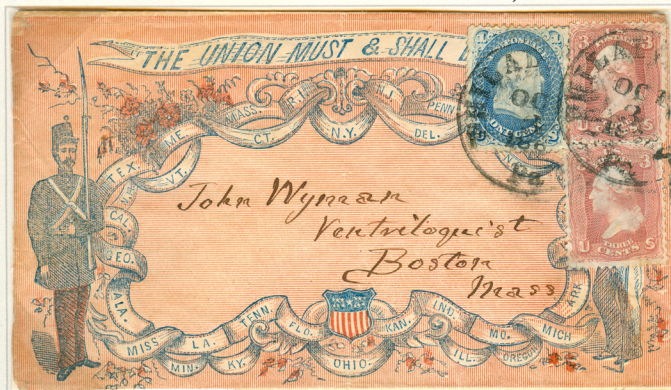 THE UNION MUST & SHALL
MASS. R.I. N.J. PENN
ME. CT. N.Y. DEL.
TEX. VT.
CAL.
GEO.
ALA.
MISS LA. TENN. FLO. KAN. IND. MO. MICH ARK
MIN. KY. OHIO. ILL. OREGON
John Wyman
Ventriloquist
Boston
Mass
ONE CENT
3 3
U S
THREE
CENTS
PHILAD
OC
Pa